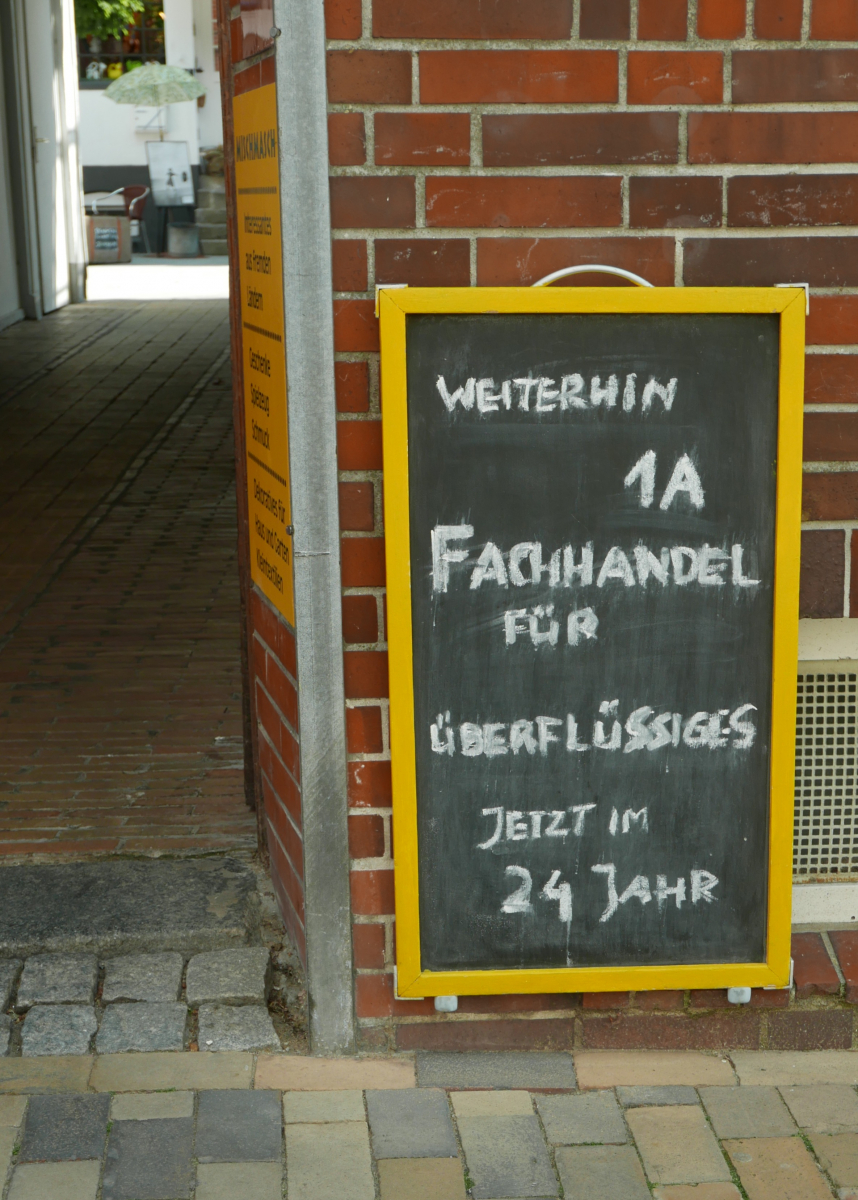 MISCHMASCH
Interessantes
aus fremden
Ländern
Geschenke
Spielzeug
Schmuck
Dekoratives für
Haus und Garten
Heimtextilien
WEITERHIN
1A
FACHHANDEL
FÜR
ÜBERFLÜSSIGES
JETZT IM
24 JAHR